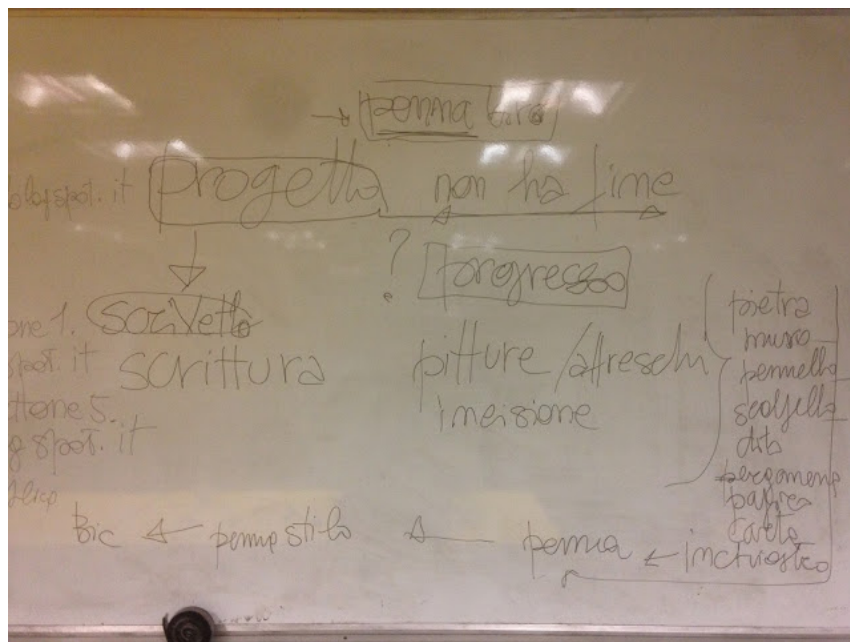 → penna biro
blogspot.it progetto non ha fine
? progresso
one 1. scrivello
spot.it scrittura
pitture/affreschi
incisione
ttone 5.
g spot.it
pietra
muro
pennello
scalpello
dito
pergamena
papiro
carta
bic ← penna stilo ← penna ← inchiostro